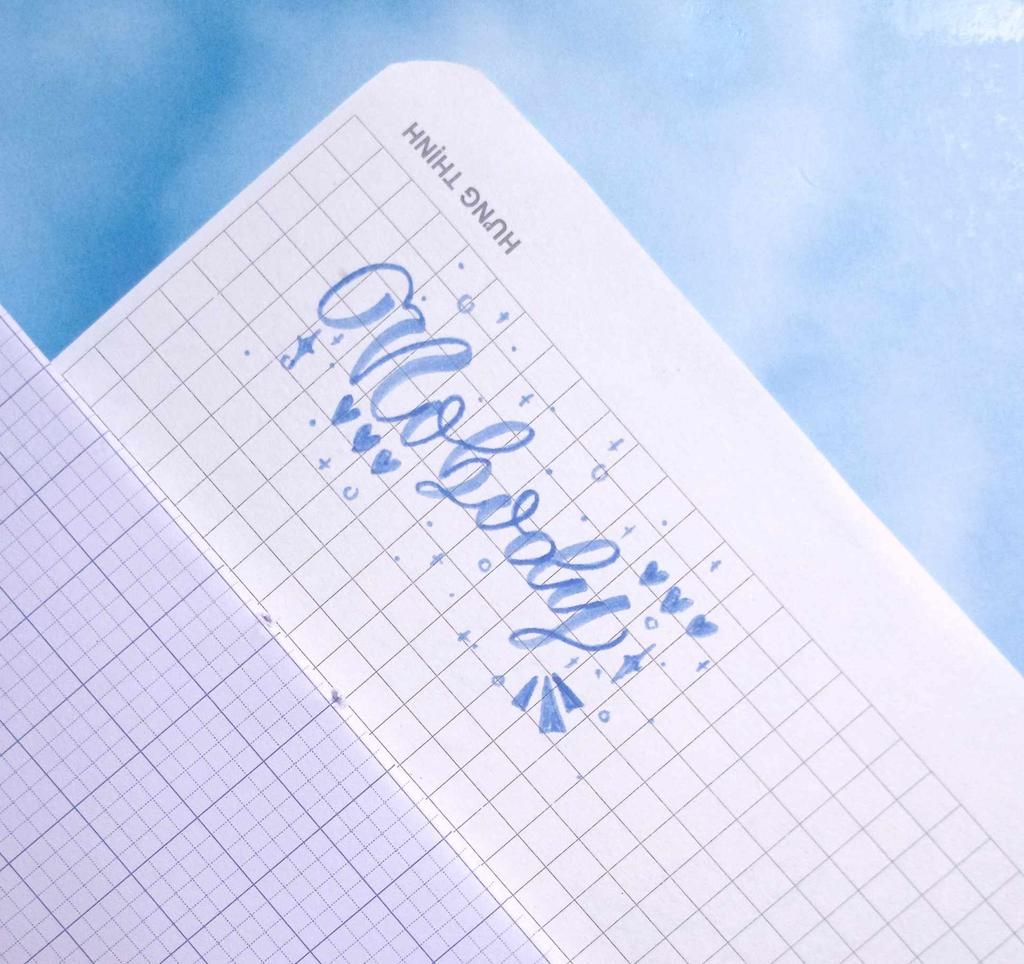 HƯNG THỊNH
Nobody